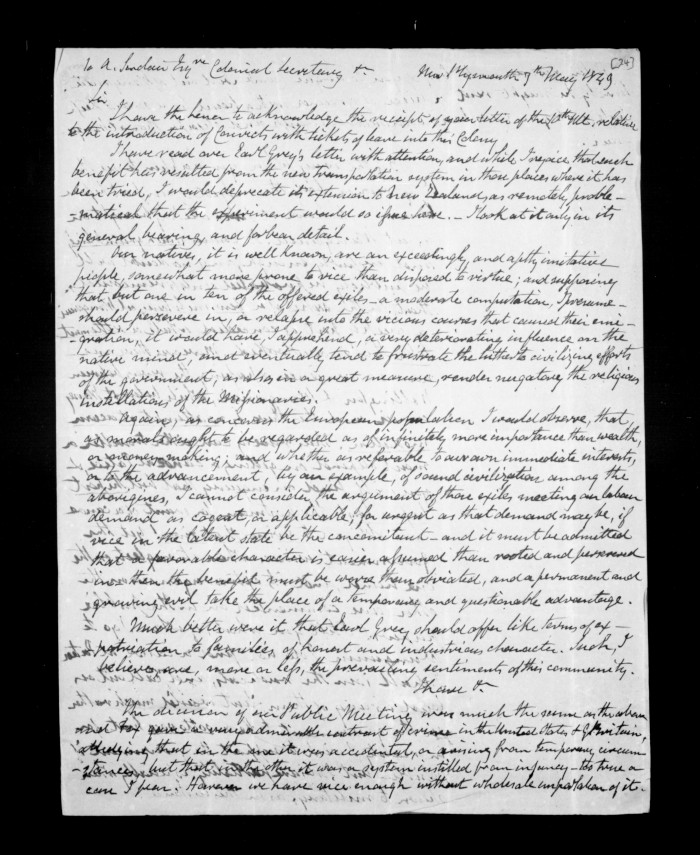 [24]
To A. Sinclair Esqre Colonial Secretary &c New Plymouth 9th May 1849
Sir
I have the honor to acknowledge the receipt of your letter of the 10th Ult, relative
to the introduction of Convicts with tickets of leave into this Colony
I have read over Earl Grey's letter with attention, and while I rejoice that such
benefit has resulted from the new transportation system in those places where it has
been tried, I would deprecate its extension to New Zealand, as remotely proble-
-matical that the experiment would so issue here. - I look at it only in its
general bearing, and forbear detail.
Our natives, it is well known, are an exceedingly, and aptly imitative
people, somewhat more prone to vice than disposed to virtue; and supposing
that but one in ten of the offered exiles - a moderate computation, I presume -
should persevere in, or relapse into the vicious courses that caused their emi-
-gration, it would have, I apprehend, a very deteriorating influence on the
native mind, and eventually tend to frustrate the hitherto civilizing efforts
of the government; as also in a great measure, render nugatory the religious
instillations of the Missionaries.
Again, as concerns the European population I would observe, that,
as morals ought to be regarded as of infinitely more importance than wealth,
or money-making; and whether as referable to our own immediate interests,
or to the advancement, by our example, of sound civilization among the
aborigines, I cannot consider the argument of those exiles meeting our labour
demand as cogent, or applicable; for urgent as that demand may be, if
vice in the latent state be the concomitant - and it must be admitted
that a favorable character is easier assumed than rooted and persevered
in - then the benefit must be worse than obviated, and a permanent and
growing evil take the place of a temporary and questionable advantage.
Much better were it that Earl Grey should offer like terms of ex-
-patriation to families of honest and industrious character. Such, I
believe, are, more or less, the prevailing sentiments of this community.
I have &c
The decision of our Public Meeting was much the same as the above
and Fox gave a very admirable contrast of crime in the United States & Gt Britain,
alledging that in the one it was accidental, or arising from temporary circum
-stances, but that in the other it was a system instilled from infancy - too true a
case I fear. However we have vice enough without wholesale importation of it.